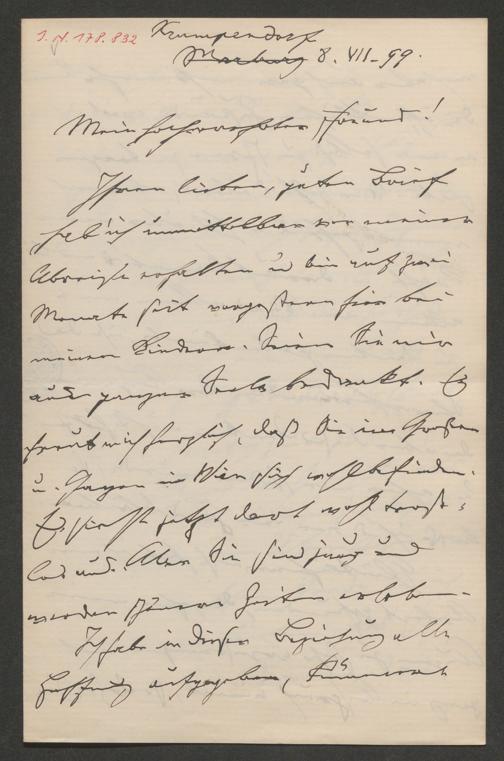 I. N. 178.832
Krumpendorf
Marburg 8. VII. 99.
Mein hochverehrter Freund!
Ihren lieben, guten Brief
hab' ich unmittelbar vor meiner
Abreise erhalten u bin auf zwei
Monate seit vorgestern hier bei
meinen Kindern. Seien Sie mir
aus ganzer Seele bedankt. Es
freut mich herzlich, daß Sie im Großen
u. Ganzen in Wien sich wohlbefinden.
Es sieht jetzt dort wohl trost-
los aus. Aber Sie sind jung und
werden schönere Zeiten erleben.
Ich habe in dieser Beziehung alle
Hoffnung aufgegeben,